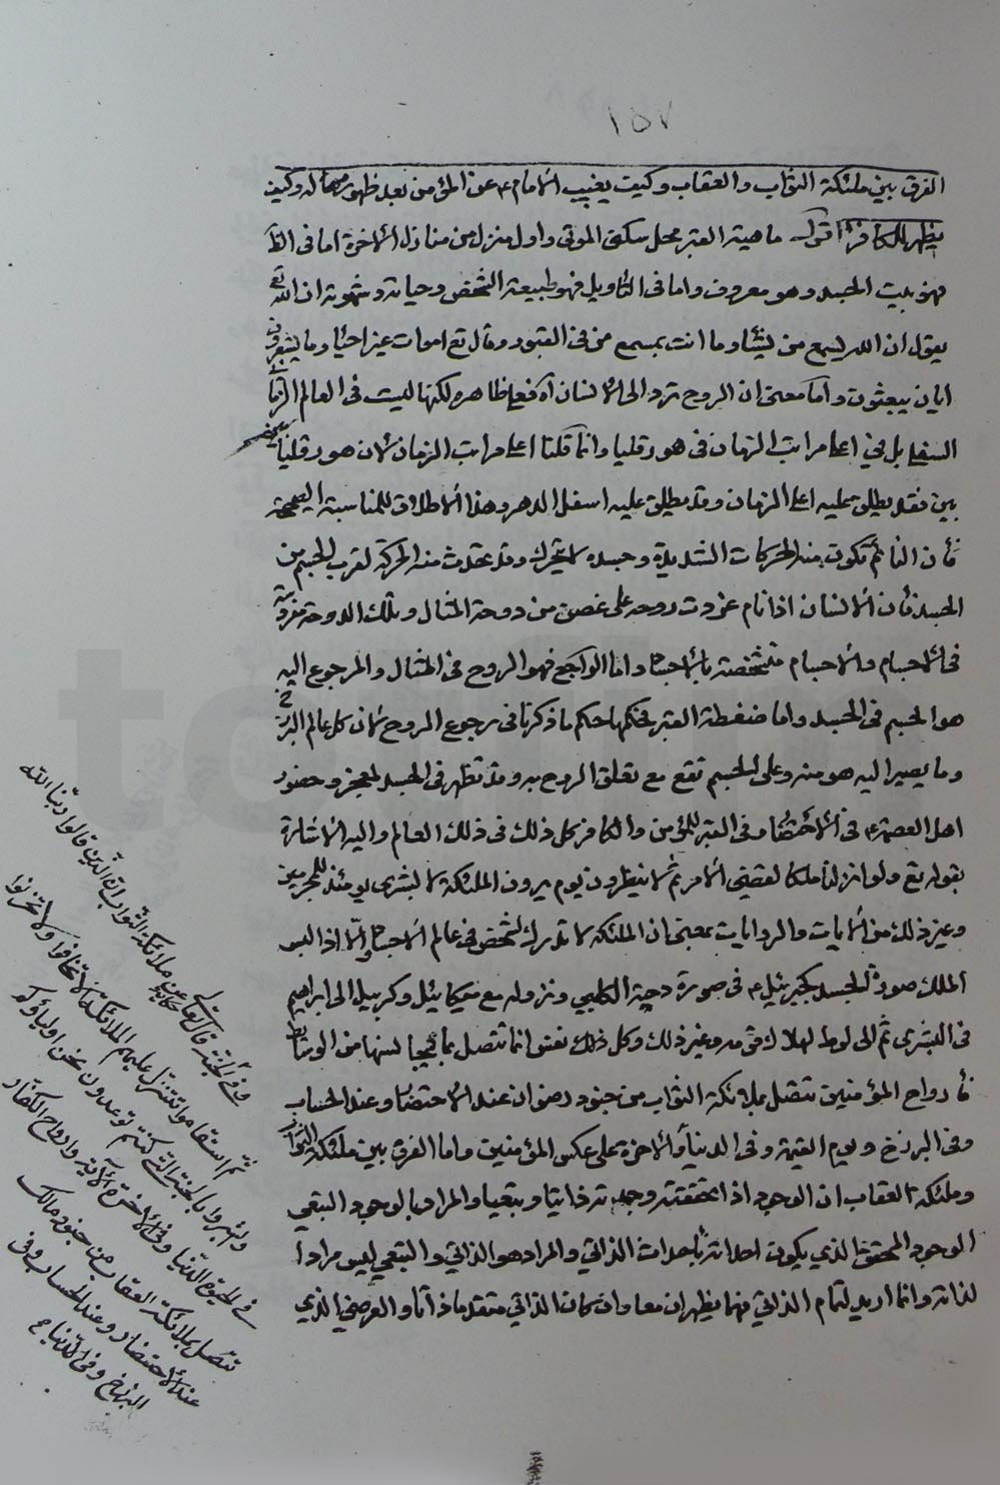 ١٥٧
الفرق بين ملئكة الثواب والعقاب وكيف يغيب الامام ع عن المؤمن بعد ظهوره له وكيف
يظهر للكافر اقول ماهية القبر محل سكنى الموتى واول منزل من منازل الاخرة اما فى الظا
فهو بيت الجسد وهو معروف واما فى التاويل فهو طبيعة الشخص وحياته وشهوته ان الله تع
يقول ان الله يسمع من يشاء وما انت بمسمع من فى القبور وقال تع اموات غير احياء وما يشعرون
ايان يبعثون واما معنى ان الروح ترد الى الانسان آه فعلى ظاهره لكنها ليست فى العالم الزما
السفلى بل فى اعلى مراتب الزمان فى هورقليا وانما قلنا اعلى مراتب الزمان لان هورقليا
بين فقد يطلق عليه اعلى الزمان وقد يطلق عليه اسفل الدهر وهذا الاطلاق للمناسبة الصحيحة
فان النائم تكون منه الحركات الشديدة وجسده لا يتحرك وقد تحدث منه الحركة لقرب الجسم من
الجسد فان الانسان اذا نام غردت روحه على غصن من دوحة المثال وتلك الدوحة مغروسة
فى الاجسام والاجسام متشخصة بالاجساد واما الراجع فهو الروح فى المثال والمرجوع اليه
هو الجسم فى الجسد واما ضغطة القبر فحكمها حكم ما ذكرنا فى رجوع الروح لان كل عالم البرزخ
وما يصير اليه هو منه وعلى الجسم تقع مع تعلق الروح به وقد تظهر فى الجسد لمعجز وحضور
اهل العصمة ع فى الاحتضار وفى القبر للمؤمن والكافر كل ذلك فى ذلك العالم واليه الاشارة
بقوله تع ولو انزلنا ملكا لقضى الامر ثم لا ينظرون يوم يرون الملئكة لا بشرى يومئذ للمجرمين
وغير ذلك من الايات والروايات بمعنى ان الملئكة لا تدرك لشخص فى عالم الاجساد الا اذا لبس
الملك صورة الجسد كجبرئيل ع فى صورة دحية الكلبي ونزوله مع ميكائيل وكربيل الى ابراهيم
فى البشرى ثم الى لوط لهلاك قومه وغير ذلك وكل نفس انما تتصل بما يجانسها من الوسائط
فارواح المؤمنين تتصل بملائكة الثواب من جنود رضوان عند الاحتضار وعند الحساب
وفى البرزخ ويوم القيمة وفى الدنيا والاخرة على عكس المؤمنين واما الفرق بين ملئكة الثواب
وملئكة العقاب ان الوجود اذا تحققته وجدته ذاتيا وتبعيا والمراد بالوجود التبعي
الوجود المحقق الذي يكون احداثه باحداث الذاتي والمراد هو الذاتي والتبعي ليس مرادا
لذاته وانما اريد لتمام الذاتي فهما يظهران معا وان كان الذاتي متقدما ذاتا والعرضي الذي
وفى الجنة قال تعالى حكاية عن ملائكة الثواب ان الذين قالوا ربنا الله
ثم استقاموا تتنزل عليهم الملائكة الا تخافوا ولا تحزنوا
وابشروا بالجنة التى كنتم توعدون نحن اولياؤكم
فى الحيوة الدنيا وفى الاخرة الآية وارواح الكفار
تتصل بملائكة العقاب من جنود مالك
عند الاحتضار وعند الحساب وفى
البرزخ وفى الدنيا